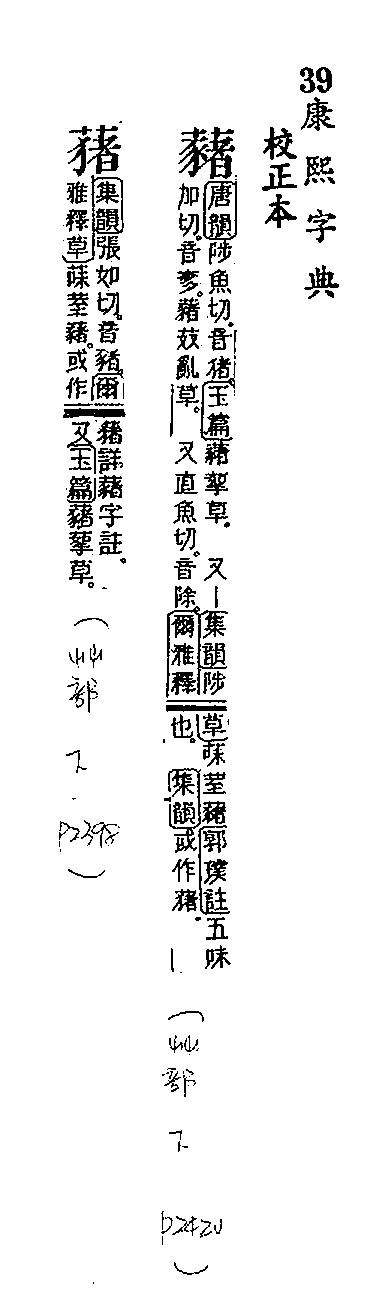 39
康熙字典
校正本
藸
唐韻陟魚切。音猪。玉篇藸挐草。又集韻陟
加切。音㚢。藸䒲亂草。又直魚切。音除。爾雅釋
草菋荎藸郭璞註五味
也。集韻或作蕏。
(艸部下 P2420)
蕏
集韻張如切。音豬。爾
雅釋草菋荎蕏。或作
藸詳藸字註。
又玉篇蕏蒘草。
(艸部下 P2398)